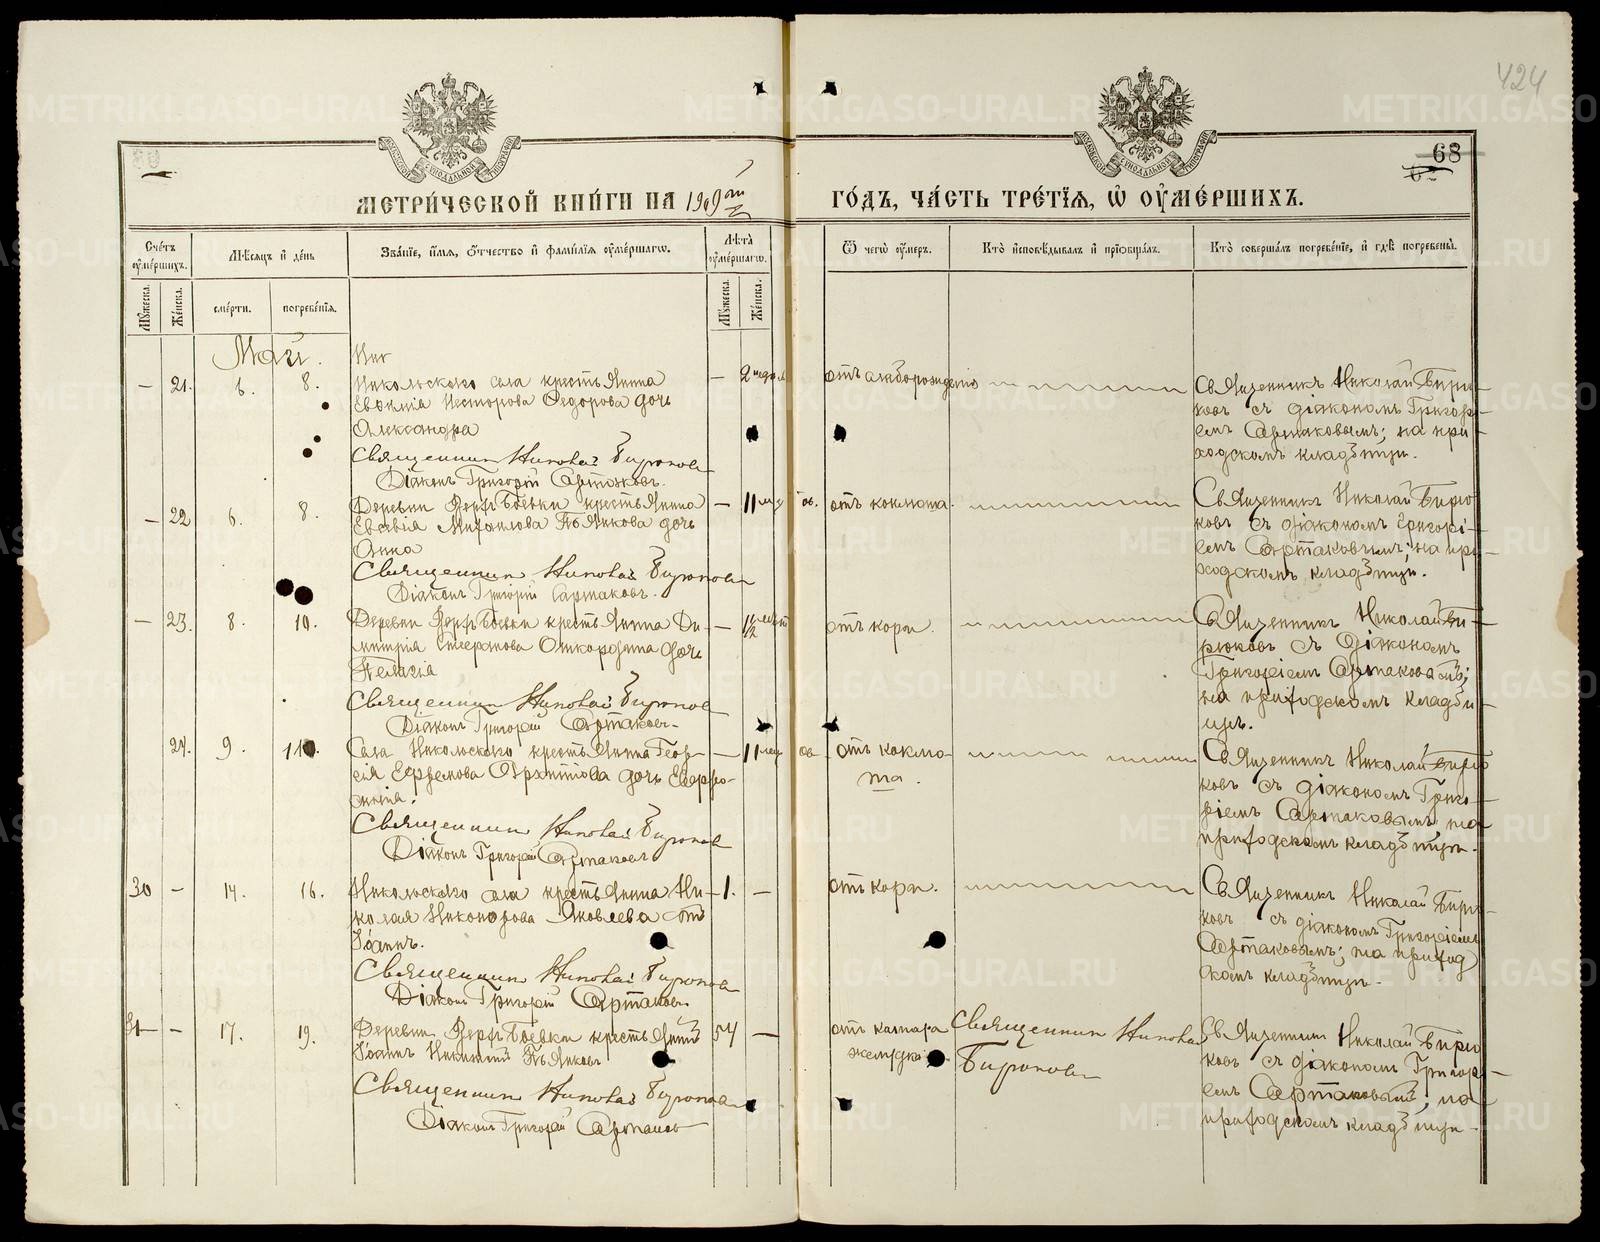 424
68
МЕТРИ́ЧЕСКОЙ КНИ́ГИ НА 1909 ый
ГО́ДЪ, ЧА́СТЬ ТРЕ́ТЇѦ, Ѡ҆ ОУ҆МЕ́РШИХЪ.
Сче́тъ оу҆ме́ршихъ.
Мѣ́сѧцъ и҆ де́нь
Зва́нїе, и҆́мѧ, ѻ҆́тчество и҆ фами́лїѧ оу҆ме́ршагѡ.
Лѣ́та оу҆ме́ршагѡ.
Ѿ чегѡ̀ оу҆́меръ.
Кто̀ и҆сповѣ́дывалъ и҆ прїѡбща́лъ.
Кто̀ соверша́лъ погребе́нїе, и҆ гдѣ̀ погребены̀.
Мꙋ́жеска.
Же́нска.
сме́рти.
погребе́нїѧ.
Мꙋ́жеска.
Же́нска.
Май.
— 21. 6. 8.
Никольскаго села крестьянина
Евфимія Несторова Федорова дочь
Александра
Священникъ Николай Бирюковъ
Діаконъ Григорій Сартаковъ.
— 2 недѣль
Священникъ Николай Бирю-
ковъ съ діакономъ Григорі-
емъ Сартаковымъ; на при-
ходскомъ кладбищѣ.
— 22 6. 8.
Деревни крестьянина
Евсевія Михайлова Пьянкова дочь
Анна
Священникъ Николай Бирюковъ
Діаконъ Григорій Сартаковъ.
— 11 мѣс.
отъ коклюша.
Священникъ Николай Бирю-
ковъ съ діакономъ Григорі-
емъ Сартаковымъ; на при-
ходскомъ кладбищѣ.
— 23. 8. 10.
Деревни крестьянина Ди-
митрія Стефанова дочь
Пелагія
Священникъ Николай Бирюковъ
Діаконъ Григорій Сартаковъ.
— 1 1/2
отъ кори.
Священникъ Николай Би-
рюковъ съ діакономъ
Григоріемъ Сартаковымъ;
на приходскомъ кладби-
щѣ.
24. 9. 11.
Села Никольскаго крестьянина Геор-
гія Ефремова Архипова дочь Евфро-
синія.
Священникъ Николай Бирюковъ
Діаконъ Григорій Сартаковъ
— 11 мѣс.
отъ коклю-
ша.
Священникъ Николай Бирю-
ковъ съ діакономъ Григо-
ріемъ Сартаковымъ на
приходскомъ кладбищѣ.
30 — 14. 16.
Никольскаго села крестьянина Ни-
колая Никонорова Яковлева сынъ
Іоаннъ.
Священникъ Николай Бирюковъ
Діаконъ Григорій Сартаковъ
1. —
отъ кори.
Священникъ Николай Бирю-
ковъ съ діакономъ Григоріемъ
Сартаковымъ; на приход
скомъ кладбищѣ.
31 — 17. 19.
Деревни крестьянинъ
Іоаннъ Никитинъ Пьянковъ
Священникъ Николай Бирюковъ
Діаконъ Григорій Сартаковъ
54 —
отъ катара
желудка
Священникъ Николай
Бирюковъ
Священникъ Николай Бирю
ковъ съ діакономъ Григорі-
емъ Сартаковымъ; на
приходскомъ кладбищѣ.
METRIKI.GASO-URAL.RU